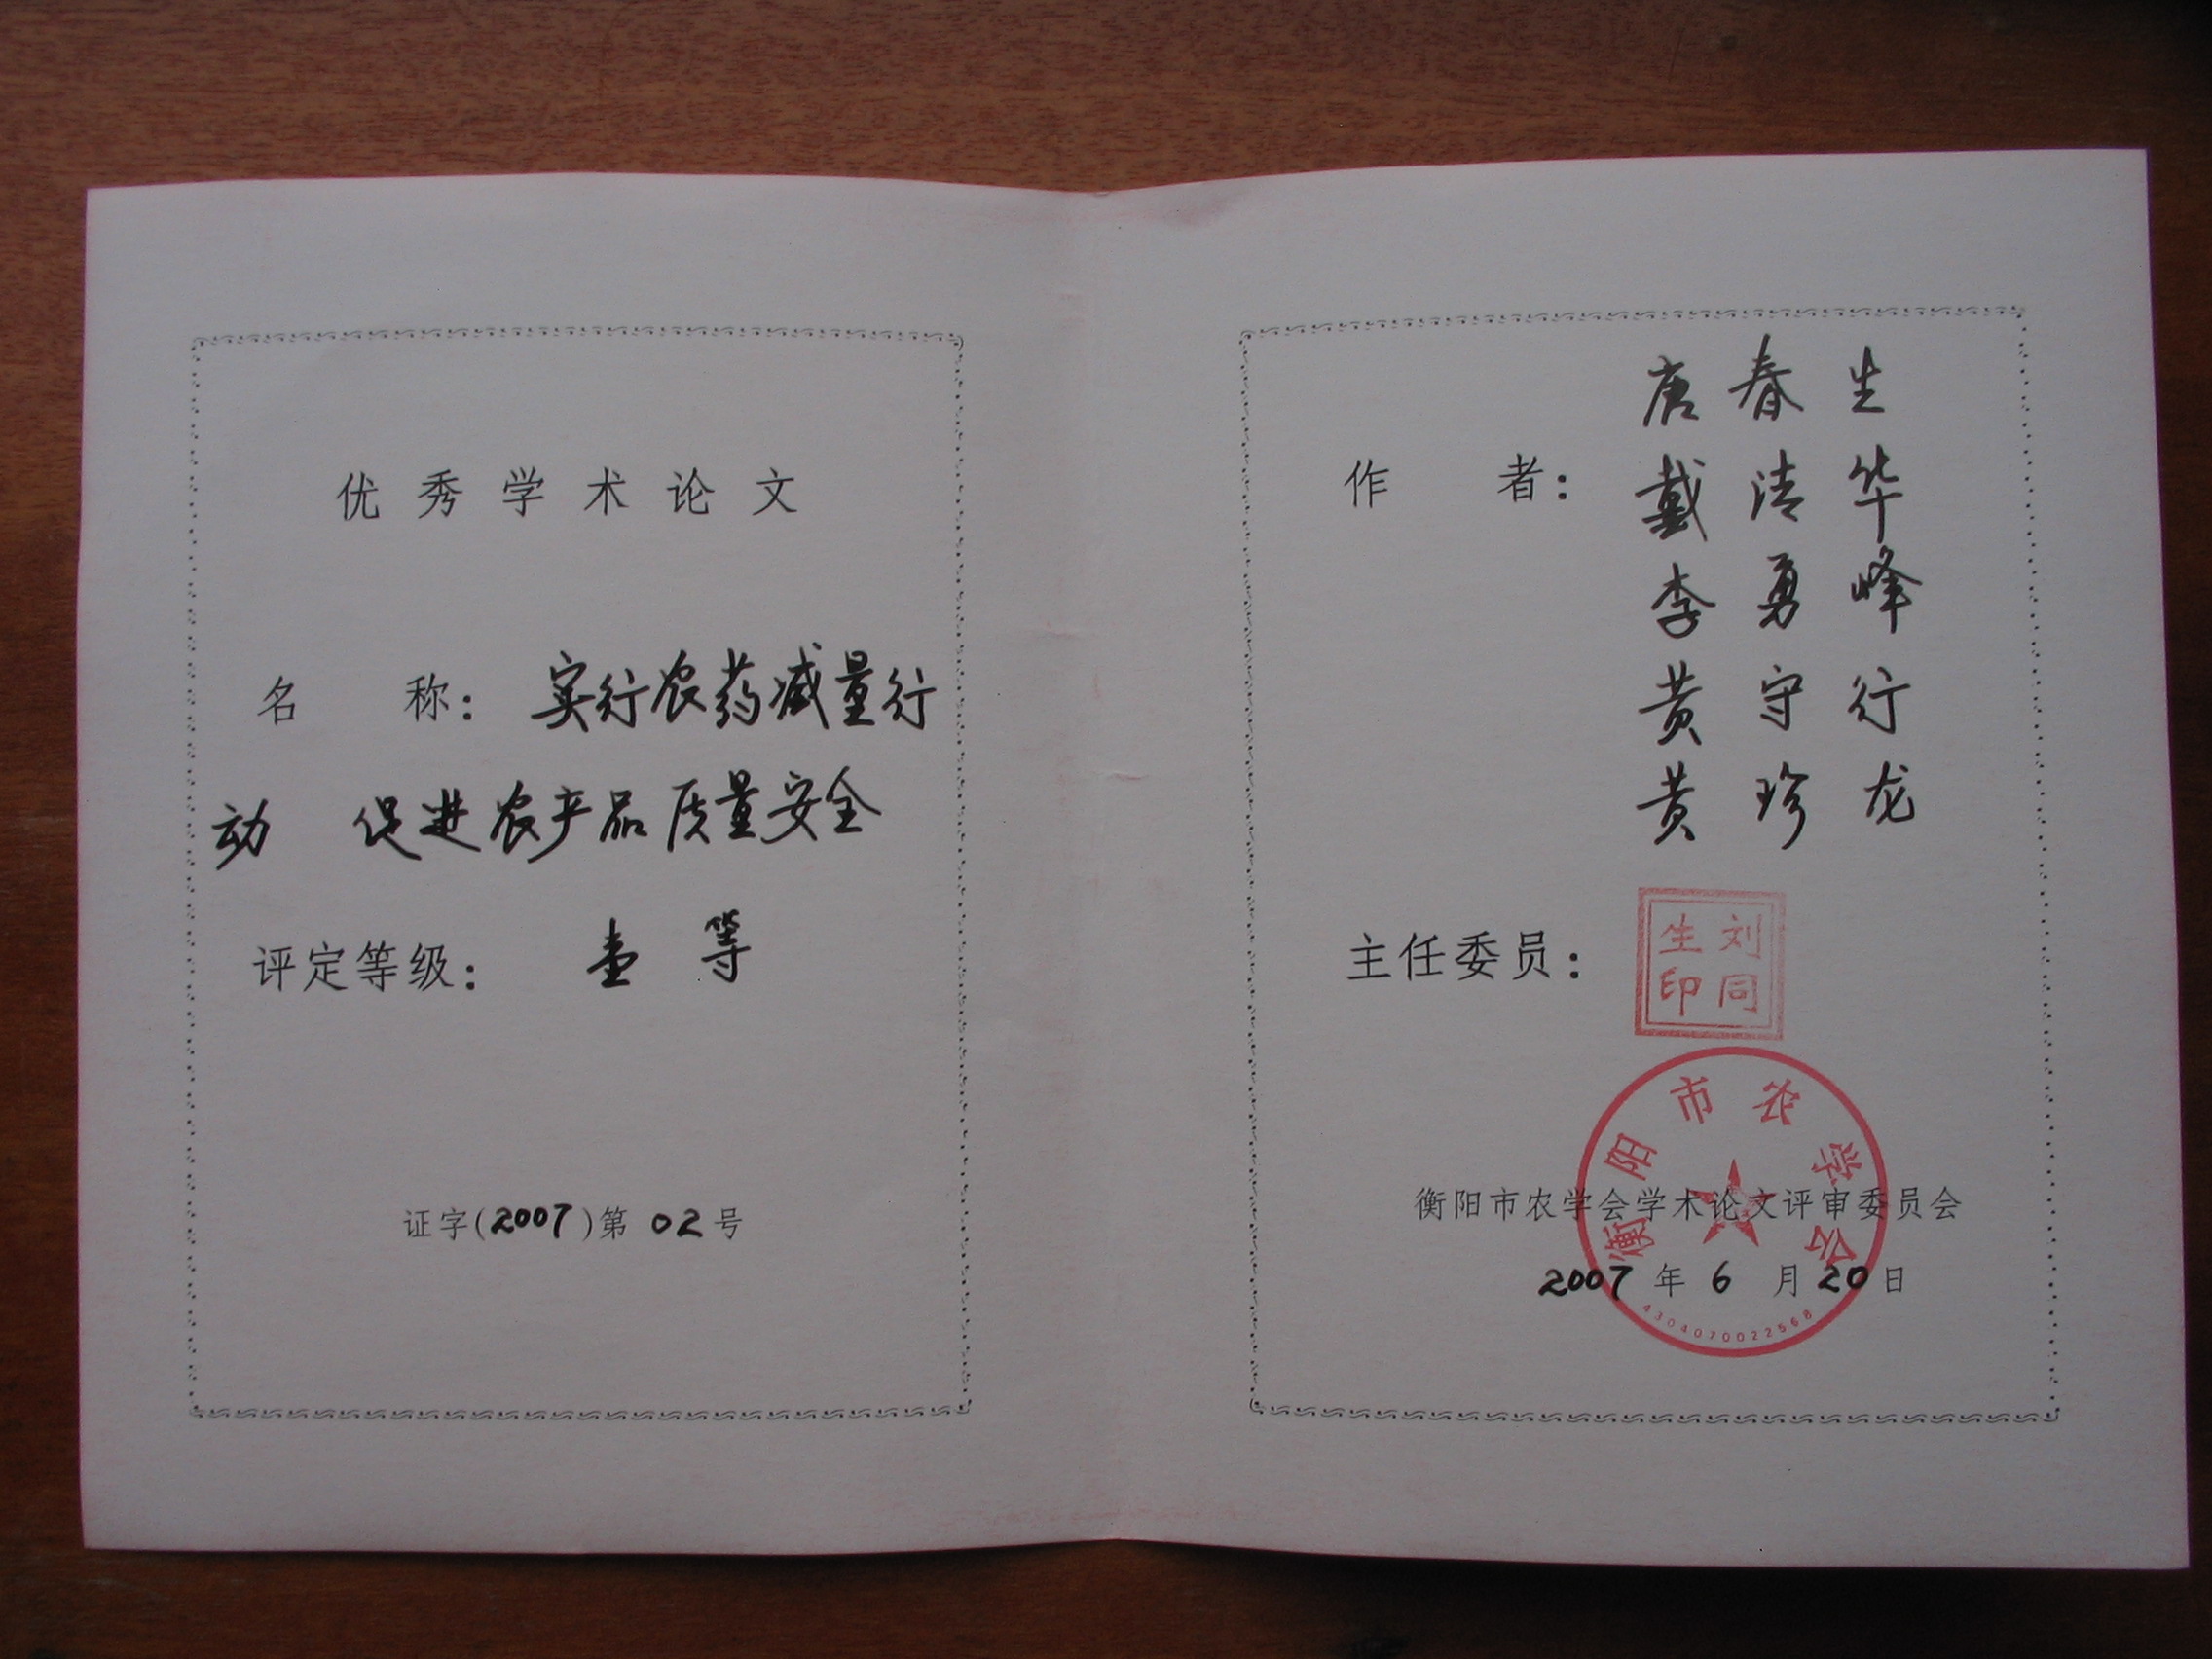 优秀学术论文
名称：实行农药减量行
动 促进农产品质量安全
评定等级：壹等
证字(2007)第02号
唐春生
作者：戴清华
李勇峰
黄守行
黄珍龙
主任委员：
刘同生印
衡阳市农学会
衡阳市农学会学术论文评审委员会
2007年6月20日
4304070022568